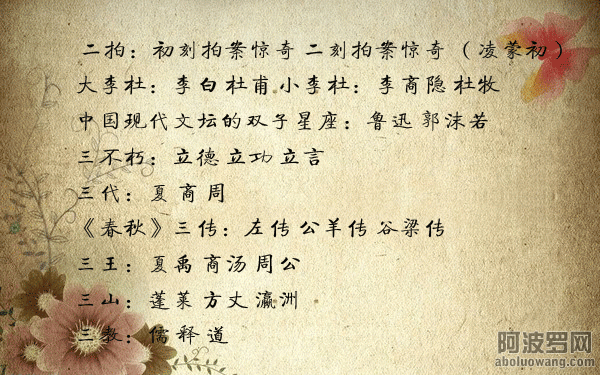 二拍：初刻拍案惊奇 二刻拍案惊奇 （凌蒙初）
大李杜：李白 杜甫 小李杜：李商隐 杜牧
中国现代文坛的双子星座：鲁迅 郭沫若
三不朽：立德 立功 立言
三代：夏 商 周
《春秋》三传：左传 公羊传 谷梁传
三王：夏禹 商汤 周公
三山：蓬莱 方丈 瀛洲
三教：儒 释 道
阿波罗网
aboluowang.com